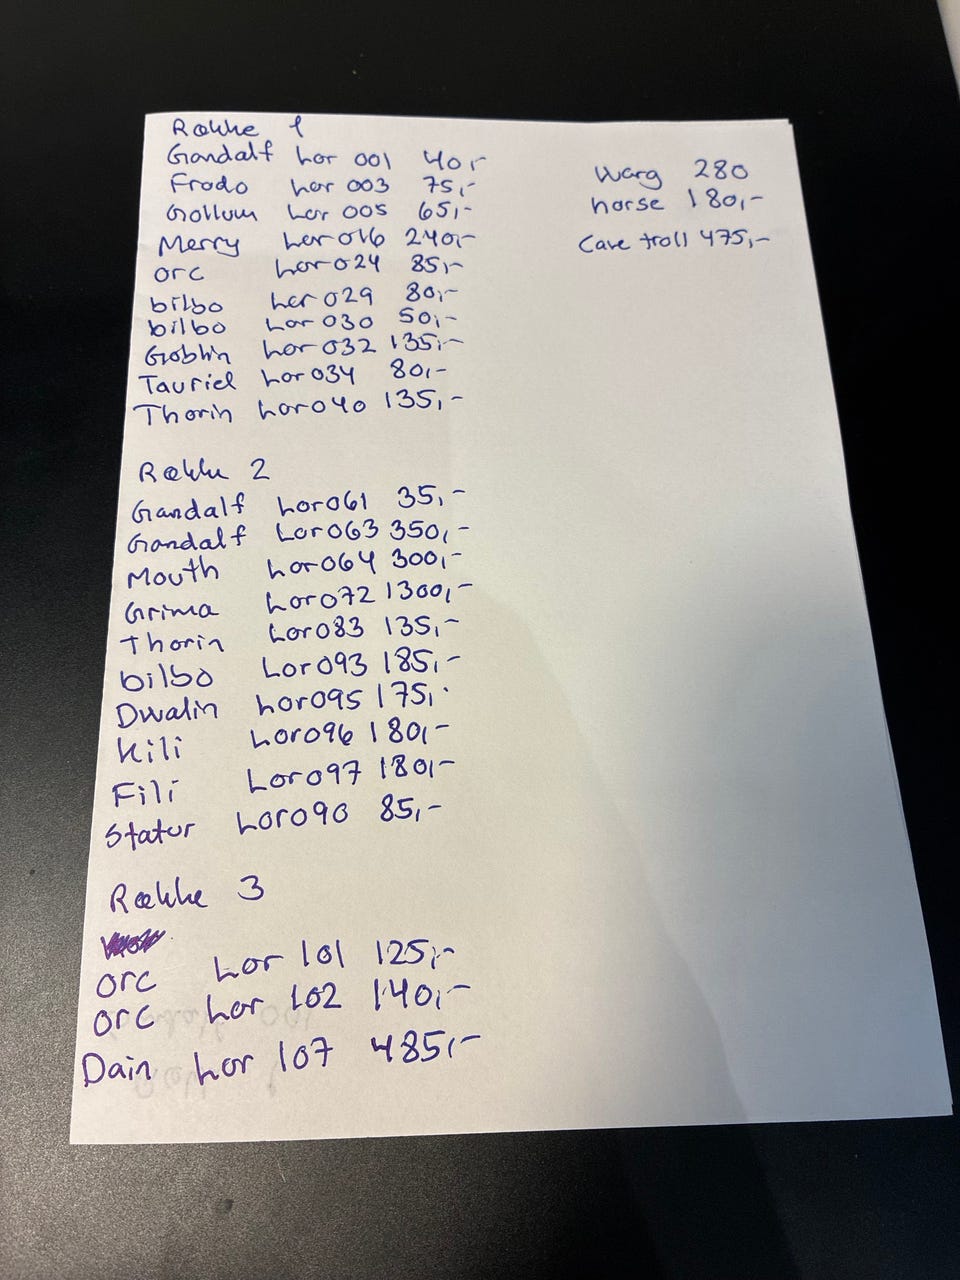 Række 1
Gandalf lor 001 40,-
Frodo lor 003 75,-
Gollum lor 005 65,-
Merry lor 016 240,-
orc lor 024 85,-
bilbo lor 029 80,-
bilbo lor 030 50,-
Goblin lor 032 135,-
Tauriel lor 034 80,-
Thorin lor 040 135,-
Række 2
Gandalf Lor 061 35,-
Gandalf Lor 063 350,-
Mouth lor 064 300,-
Grima lor 072 1300,-
Thorin Lor 083 135,-
bilbo Lor 093 185,-
Dwalin lor 095 175,-
Kili lor 096 180,-
Fili Lor 097 180,-
Statur Lor 090 85,-
Række 3
orc lor 101 125,-
orc lor 102 140,-
Dain lor 107 485,-
Warg 280
horse 180,-
Cave troll 475,-